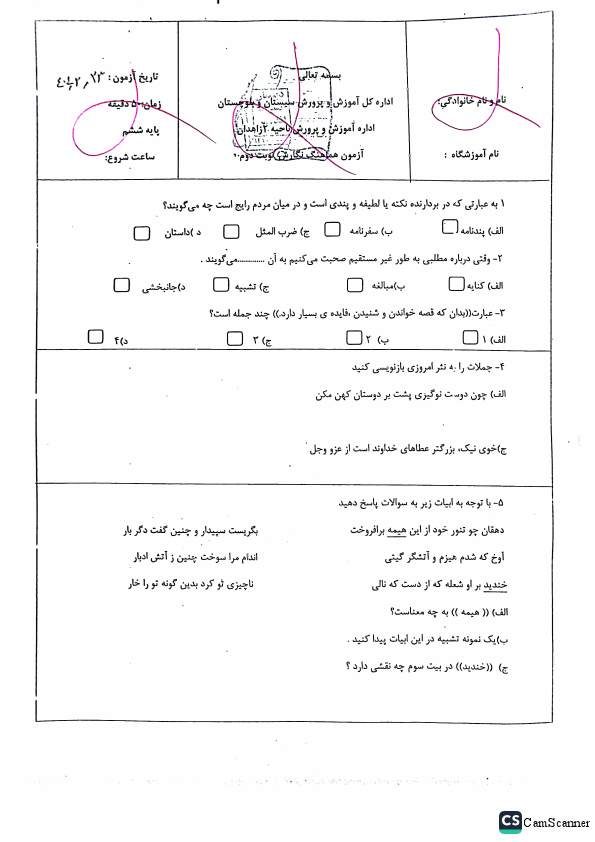 بسمه تعالی
اداره کل آموزش و پرورش سیستان و بلوچستان
اداره آموزش و پرورش ناحیه ۲زاهدان
آزمون هماهنگ نگارش نوبت دوم
نام و نام خانوادگی:
نام آموزشگاه :
تاریخ آزمون :
زمان: ۵۰ دقیقه
پایه ششم
ساعت شروع:
۱ به عبارتی که در بردارنده نکته یا لطیفه و پندی است و در میان مردم رایج است چه می‌گویند؟
الف) پندنامه ب) سفرنامه ج) ضرب المثل د )داستان
۲- وقتی درباره مطلبی به طور غیر مستقیم صحبت می‌کنیم به آن ............می‌گویند .
الف) کنایه ب)مبالغه ج) تشبیه د)جانبخشی
۳- عبارت((بدان که قصه خواندن و شنیدن ،فایده ی بسیار دارد.)) چند جمله است؟
الف) ۱ ب) ۲ ج) ۳ د)۴
۴- جملات را به نثر امروزی بازنویسی کنید
الف) چون دوست نوگیری پشت بر دوستان کهن مکن
ج)خوی نیک، بزرگتر عطاهای خداوند است از عزو وجل
۵- با توجه به ابیات زیر به سوالات پاسخ دهید
دهقان چو تنور خود از این هیمه برافروخت بگریست سپیدار و چنین گفت دگر بار
آوخ که شدم هیزم و آتشگر گیتی اندام مرا سوخت چنین ز آتش ادبار
خندید بر او شعله که از دست که نالی ناچیزی تو کرد بدین گونه تو را خار
الف) (( هیمه )) به چه معناست؟
ب)یک نمونه تشبیه در این ابیات پیدا کنید .
ج) ((خندید)) در بیت سوم چه نقشی دارد ؟
CS CamScanner